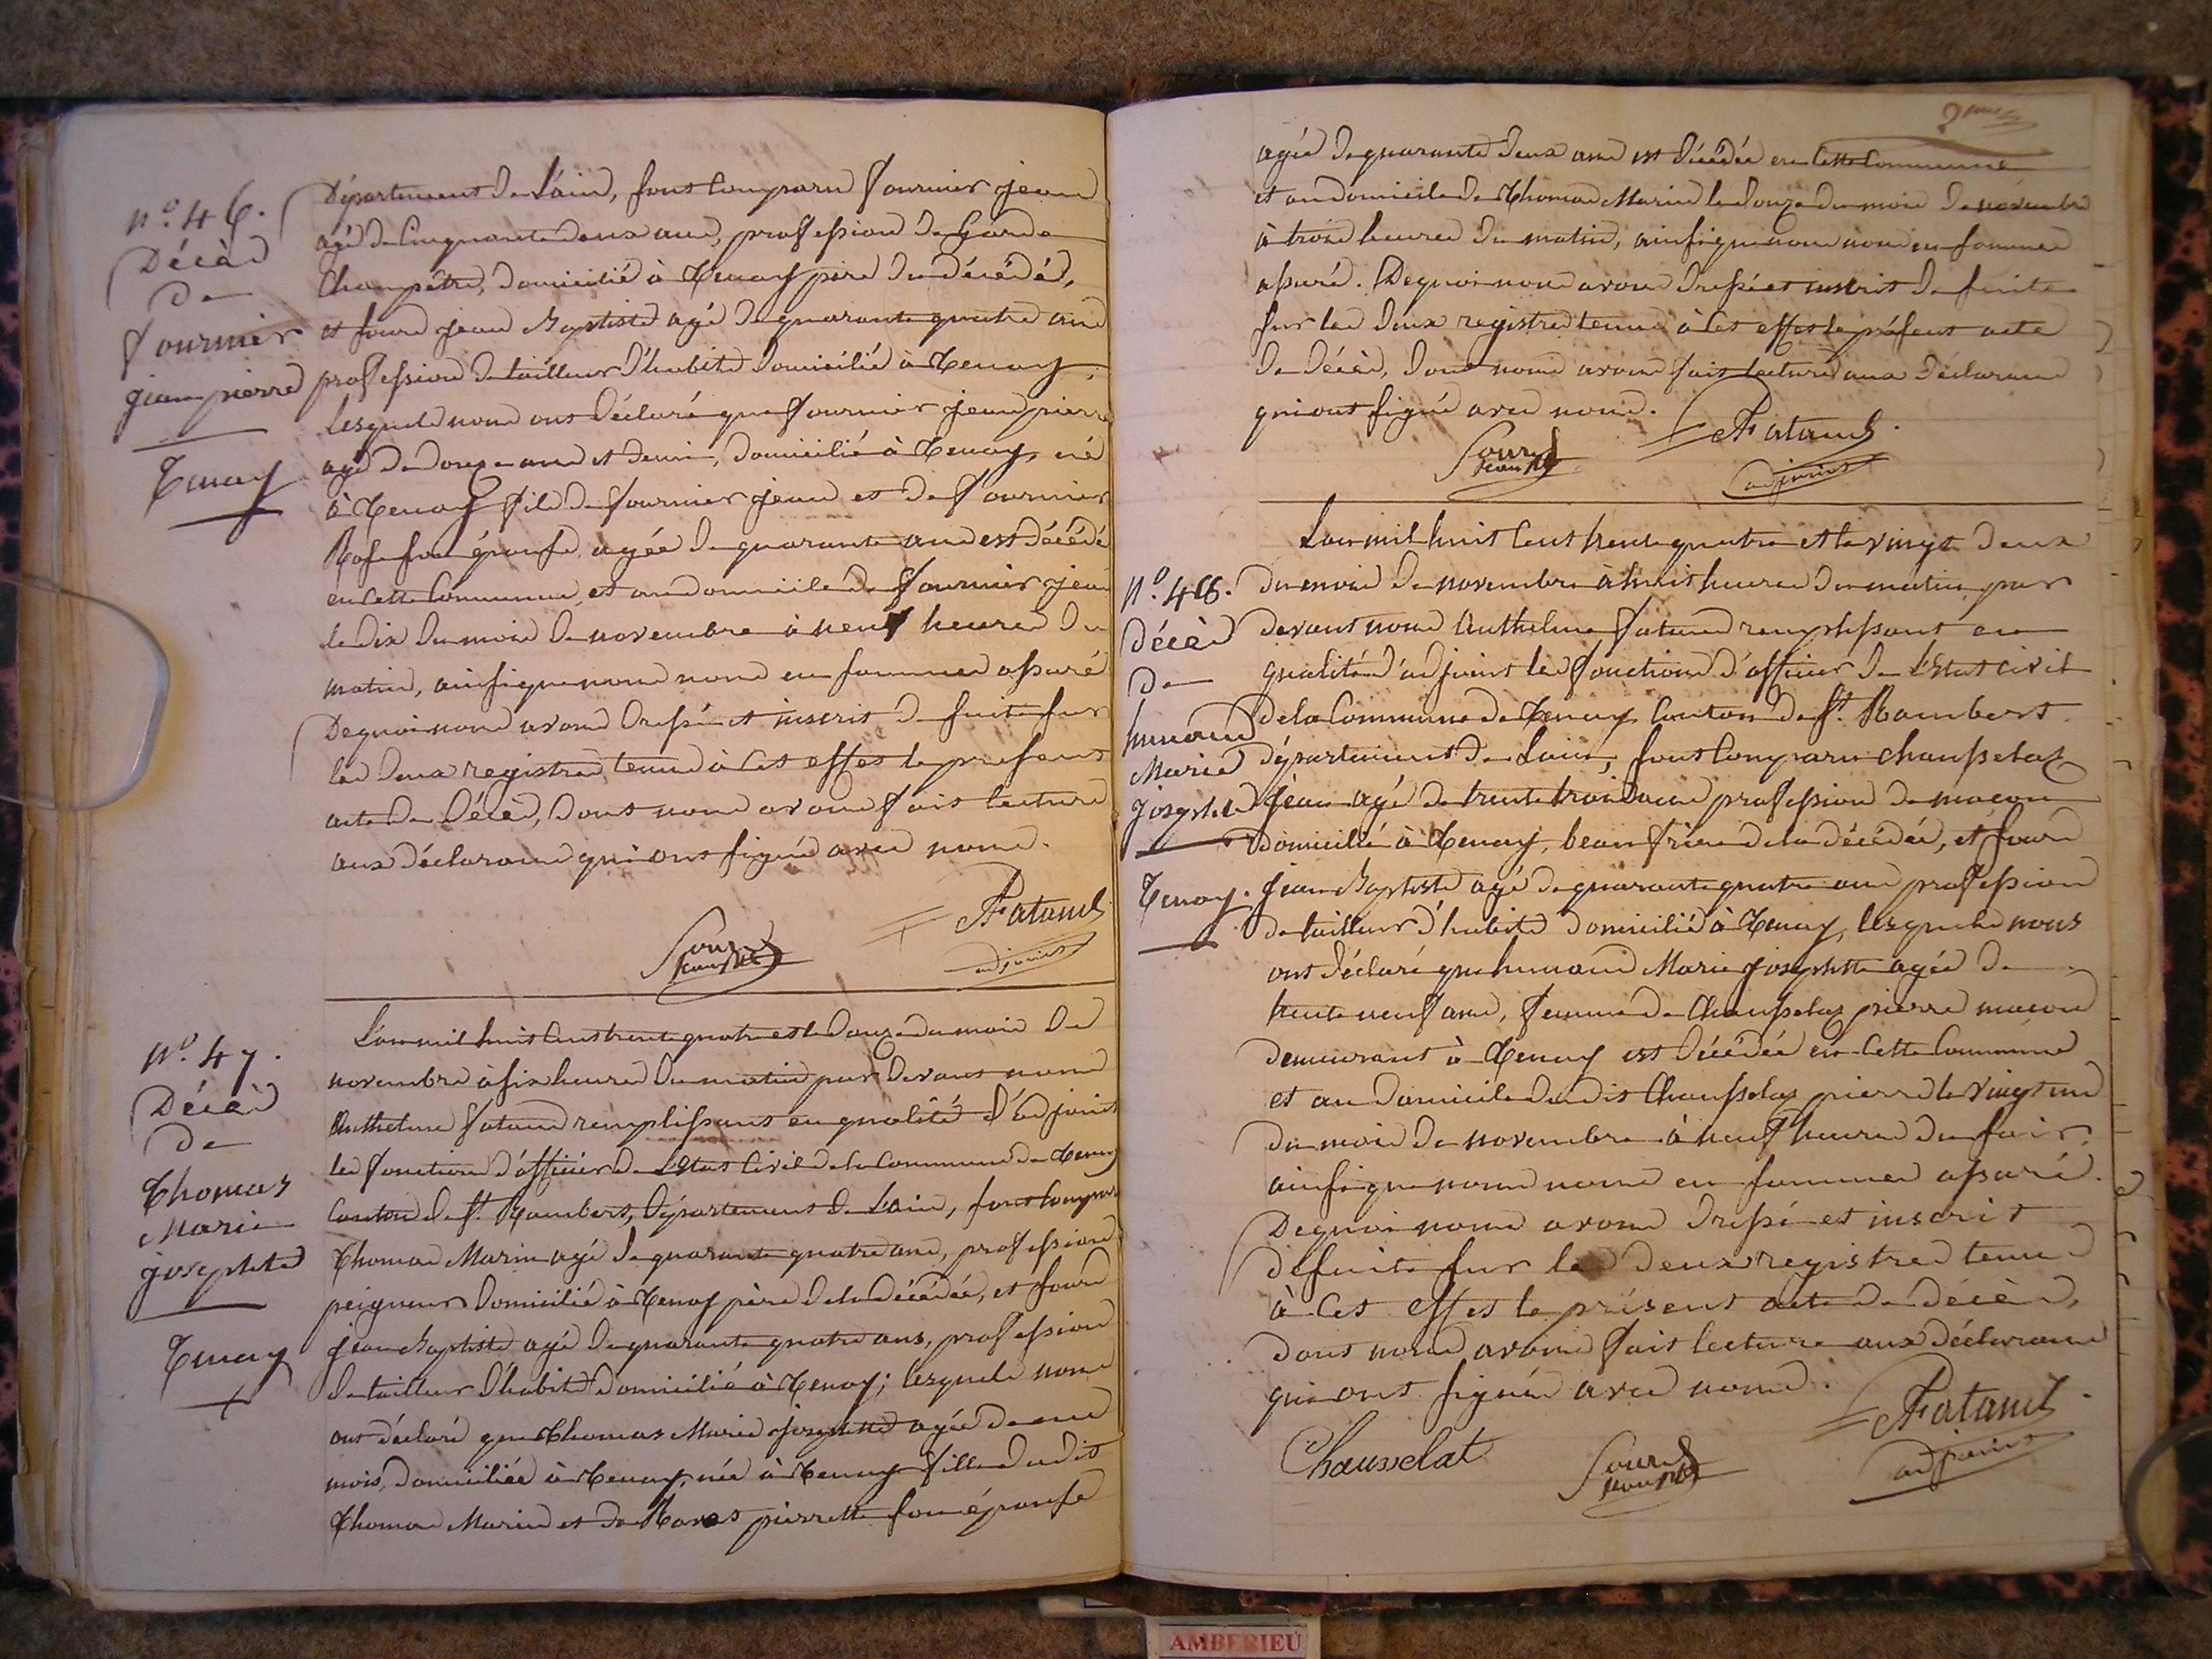 n.o 46.
Décès
de
fournier
jean pierre
Tenay
Département de L'ain, sont Comparu fournier jean
agé de Cinquante deux ans, profession de Garde
Champêtre, domicilié à Tenay père du décédé,
et sourd jean Baptiste agé de quarante quatre ans
profession de tailleur d'habits domicilié à Tenay,
Lesquels nous ont déclaré que fournier jean pierre
agé de douze ans et demi, domicilié à Tenay, né
à Tenay fils de fournier jean et de fournier
Rose son épouse, agée de quarante ans est décédé
en Cette Commune, et au domicile de fournier jean
le dix du mois de novembre à neuf heures du
matin, ainsi que nous nous en sommes assuré
De quoi nous avons dressé et inscrit de suite sur
les deux registres tenus à Cet effet le present
acte de Décès, dont nous avons fait lecture
aux déclarans qui ont signés avec nous.
Sourd
jean Bte
AFatand
adjoint
n.o 47.
Décès
de
Thomas
Marie
josephte
Tenay
L'an mil huit Cent trente quatre et le douze du mois de
novembre à six heures du matin par devant nous
Anthelme fatand remplissant en qualité d'adjoint
les fonctions d'officier de L'Etat Civil de la Commune de Tenay
Canton de St. Rambert, Département de L'ain, sont Comparu
Thomas Marin agé de quarante quatre ans, profession
peigneur domicilié à Tenay père de la décédée, et sourd
jean Baptiste agé de quarante quatre ans, profession
de tailleur d'habits domicilié à Tenay; lesquels nous
ont déclaré que Thomas Marie josephte agée de
mois, domiciliée à Tenay, née à Tenay fille dudit
Thomas Marin et de pierrette son épouse
agée de quarante deux ans est décédée en Cette Commune
et au domicile de Thomas Marin le douze du mois de novembre
à trois heures du matin, ainsi que nous nous en sommes
assuré. De quoi nous avons dressé et inscrit de suite
sur les deux registres tenus à Cet effet le présent acte
de décès, dont nous avons fait lecture aux déclarans
qui ont signé avec nous.
Sourd
jean Bte
AFatand
adjoint
n.o 48.
Décès
de
humand
Marie
josephte
Tenay.
L'an mil huit Cent trente quatre et le vingt deux
du mois de novembre à huit heures du matin, par
devant nous Anthelme fatand remplissant en
qualité d'adjoint les fonctions d'officier de L'Etat civil
de la Commune de Tenay Canton de St. Rambert
département de L'ain, sont Comparu Chausselat
jean agé de trente trois ans profession de maçon
domicilié à Tenay, beau frère de la décédée, et sourd
jean Baptiste agé de quarante quatre ans profession
de tailleur d'habits domicilié à Tenay, Lesquels nous
ont déclaré que humand Marie josephte agée de
trente neuf ans, femme de Chausselat pierre maçon
demeurant à Tenay est décédée en Cette Commune
et au domicile dudit Chausselat pierre le vingt un
du mois de novembre à neuf heures du soir,
ainsi que nous nous en sommes assuré.
De quoi nous avons dressé et inscrit
de suite sur les deux registres tenus
à Cet effet le présent acte de décès,
dont nous avons fait lecture aux déclarans
qui ont signés avec nous.
Chausselat
Sourd
jean Bte
AFatand
adjoint
AMBERIEU